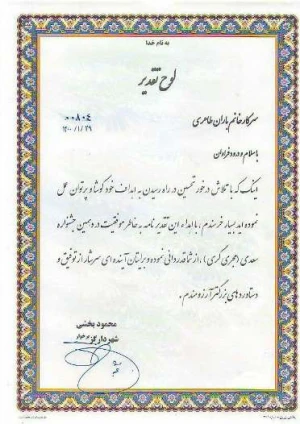 به نام خدا
لوح تقدیر
۰۰۸۰۴
۱۴۰۰/۱/۲۹
سرکار خانم باران طاهری
با سلام و درود فراوان
اینک که با تلاش درخور تحسین در راه رسیدن به اهداف خود کوشا و پرتوان عمل
نموده اید بسیار خرسندم با اهداء این تقدیر نامه به خاطر موفقیت در دهمین جشنواره
سعدی (مجری گری)، از شما قدردانی نموده و برایتان آینده ای سرشار از توفیق و
دستاوردهای بزرگتر آرزومندم.
محمود بخشی
شهردار گز برخوار